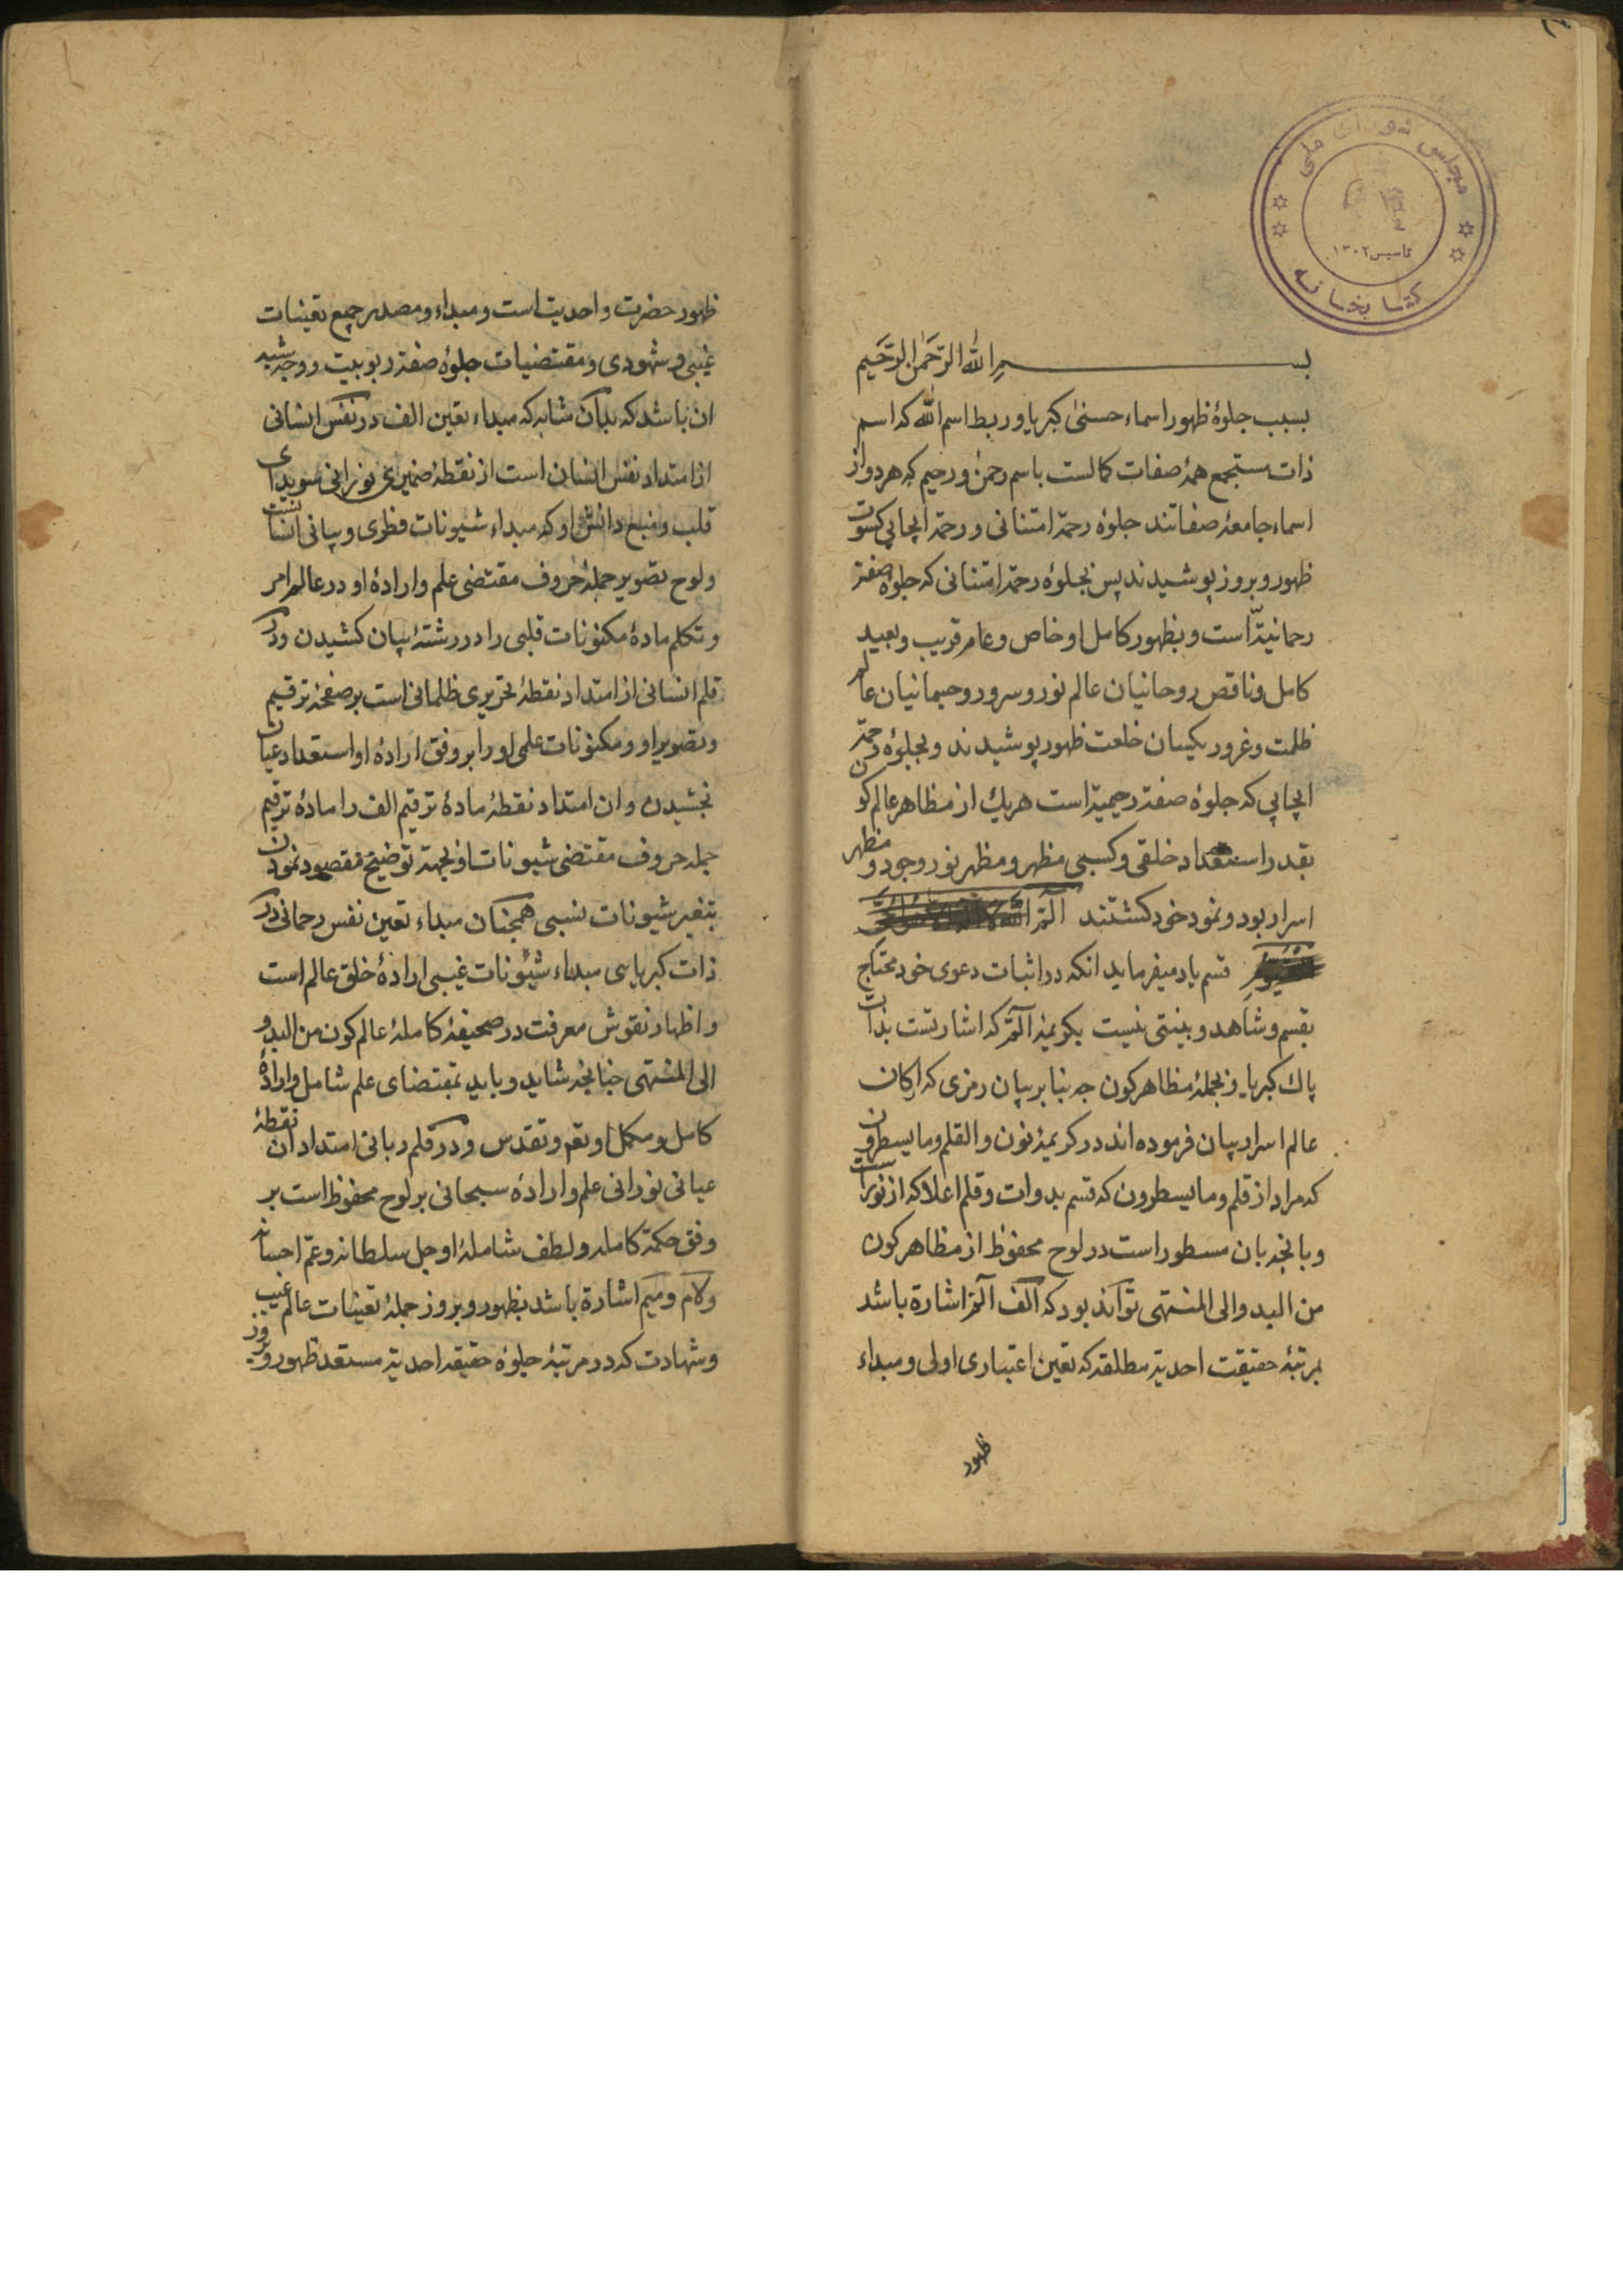 مجلس شورای ملی
تاسیس ۱۳۰۲
کتابخانه
بسم الله الرَّحمن الرَّحیم
بسبب جلوۀ ظهور اسماء حسنی کبریا و ربط اسم الله که اسم
ذات مستجمع همۀ صفات کمالست باسم رحمن و رحیم که هر دو از
اسماء جامعۀ صفاتند جلوۀ رحمة امتنانی و رحمة ایجابی کسوت
ظهور و بروز پوشیدند پس بجلوۀ رحمة امتنانی که جلوۀ صفة
رحمانیة است و بظهور کامل او خاص و عام و قریب و بعید
کامل و ناقص روحانیان عالم نور و سرور و جسمانیان عالم
ظلمت و غرور یکسان خلعت ظهور پوشیدند و بجلوۀ رحمة
ایجابی که جلوۀ صفة رحیمیة است هریك از مظاهر عالم کون
بقدر استعداد خلقی و کسبی مظهر و مظهر نور وجود و مظهر
اسرار بود و نمود خود کشتند الٓمٓ الله
قسم یاد میفرماید انکه در اثبات دعوی خود محتاج
بقسم و شاهد و بینتی نیست بکریمۀ الٓمٓ که اشارتست بذات
پاك کبریا و بجملۀ مظاهر کون چه بنا بر بیان رمزی که ارکان
عالم اسرار بیان فرموده اند در کریمۀ نون و القلم و ما یسطرون
که مراد از قلم و ما یسطرون که قسم بدوات و قلم اعلا که از نورست
و بانچه بان مسطور است در لوح محفوظ از مظاهر کون
من البدو الی المنتهی تواند بود که الف الٓمٓ اشارة باشد
بمرتبۀ حقیقت احدیة مطلقه که تعین اعتباری اولی و مبداء
ظهور
ظهور حضرت واحدیت است و مبداء و مصدر جمیع تعینات
غیبی و شهودی و مقتضیات جلوۀ صفة ربوبیت و وجه شبه
ان باشد که بدان مثابه که مبداء تعین الف در نفس انسانی
از امتداد نفس انسان است از نقطۀ ضمیری نورانی سویدای
قلب و منبع دانش او که مبداء شیونات فطری و بیانی انسانیست
و لوح تصویر جملۀ حروف مقتضی علم و ارادۀ او در عالم امر
و تکلم مادۀ مکنونات قلبی را در رشتۀ بیان کشیدن و در
قلم انسانی از امتداد نقطۀ تحریری ظلمانی است بر صفحۀ ترقیم
و تصویر او و مکنونات علمی او را بر وفق ارادۀ او استعداد عیان
بخشیدن و ان امتداد نقطۀ مادۀ ترقیم الف را مادۀ ترقیم
جمله حروف مقتضی شیونات او بجهة توضیح مقصود نمودن
بتغیر شیونات نسبی همچنان مبداء تعین نفس رحمانی در
ذات کبریایی مبداء شئونات غیبی ارادۀ خلق عالم است
و اظهار نقوش معرفت در صحیفۀ کاملۀ عالم کون من البدو
الی المنتهی چنانچه شاید و باید بمقتضای علم شامل و ارادۀ
کامل و مکمل او تع و تقدس و در قلم ربانی امتداد ان نقطۀ
عیانی نورانی علم و ارادۀ سبحانی بر لوح محفوظ است بر
وفق حکمة کامله و لطف شاملۀ او جل سلطانه و عم احسانه
و لام و میم اشارة باشد بظهور و بروز جملۀ تعینات عالم غیب
و شهادت که در مرتبۀ جلوۀ حقیقه احدیة مستعد ظهور و بروز